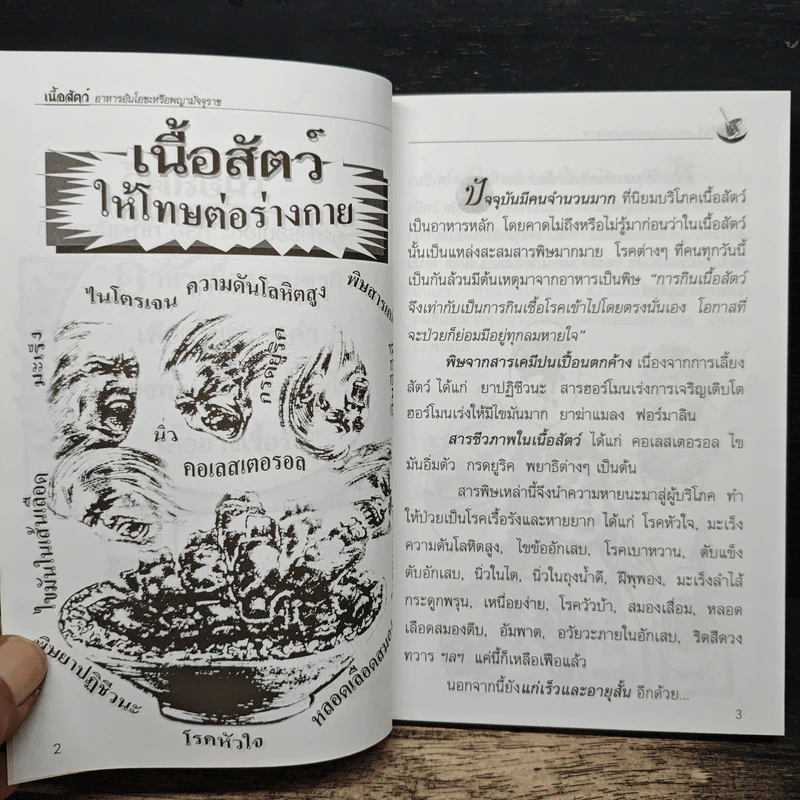 เนื้อสัตว์ อาหารอันโอชะหรือพญามัจจุราช
เนื้อสัตว์
ให้โทษต่อร่างกาย
ไนโตรเจน
ความดันโลหิตสูง
พิษสาร
มะเร็ง
กรดยูริค
นิ่ว
คอเลสเตอรอล
ไขมันในเส้นเลือด
พิษยาปฏิชีวนะ
โรคหัวใจ
หลอดเลือดสมอง
2
ปัจจุบันมีคนจำนวนมาก ที่นิยมบริโภคเนื้อสัตว์
เป็นอาหารหลัก โดยคาดไม่ถึงหรือไม่รู้มาก่อนว่าในเนื้อสัตว์
นั้นเป็นแหล่งสะสมสารพิษมากมาย โรคต่างๆ ที่คนทุกวันนี้
เป็นกันล้วนมีต้นเหตุมาจากอาหารเป็นพิษ “การกินเนื้อสัตว์
จึงเท่ากับเป็นการกินเชื้อโรคเข้าไปโดยตรงนั่นเอง โอกาสที่
จะป่วยก็ย่อมมีอยู่ทุกลมหายใจ”
พิษจากสารเคมีปนเปื้อนตกค้าง เนื่องจากการเลี้ยง
สัตว์ ได้แก่ ยาปฏิชีวนะ สารฮอร์โมนเร่งการเจริญเติบโต
ฮอร์โมนเร่งให้มีไขมันมาก ยาฆ่าแมลง ฟอร์มาลิน
สารชีวภาพในเนื้อสัตว์ ได้แก่ คอเลสเตอรอล ไข
มันอิ่มตัว กรดยูริค พยาธิต่างๆ เป็นต้น
สารพิษเหล่านี้จึงนำความหายนะมาสู่ผู้บริโภค ทำ
ให้ป่วยเป็นโรคเรื้อรังและหายยาก ได้แก่ โรคหัวใจ, มะเร็ง
ความดันโลหิตสูง, ไขข้ออักเสบ, โรคเบาหวาน, ตับแข็ง
ตับอักเสบ, นิ่วในไต, นิ่วในถุงน้ำดี, ฝีพุพอง, มะเร็งลำไส้
กระดูกพรุน, เหนื่อยง่าย, โรควัวบ้า, สมองเสื่อม, หลอด
เลือดสมองตีบ, อัมพาต, อวัยวะภายในอักเสบ, ริดสีดวง
ทวาร ฯลฯ แค่นี้ก็เหลือเฟือแล้ว
นอกจากนี้ยังแก่เร็วและอายุสั้น อีกด้วย...
3